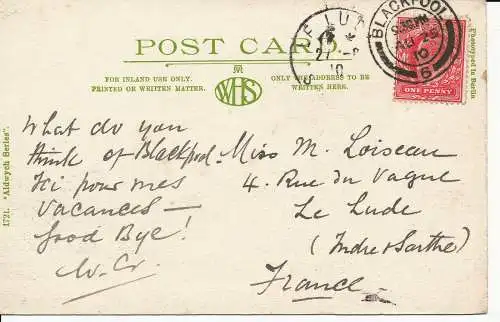 POST CARD.
FOR INLAND USE ONLY.
PRINTED OR WRITTEN MATTER.
WHS
ONLY THE ADDRESS TO BE
WRITTEN HERE.
LE LUDE
27 - 8
10
BLACKPOOL
AU 26
10
6
ONE PENNY
Phototyped in Berlin
1721. "Aldwych Series".
What do you
think of Blackpool -
Ici pour mes
vacances —
Good Bye!
Miss M. Loiseau
4. Rue du Vague
Le Lude
(Indre & Sarthe)
France